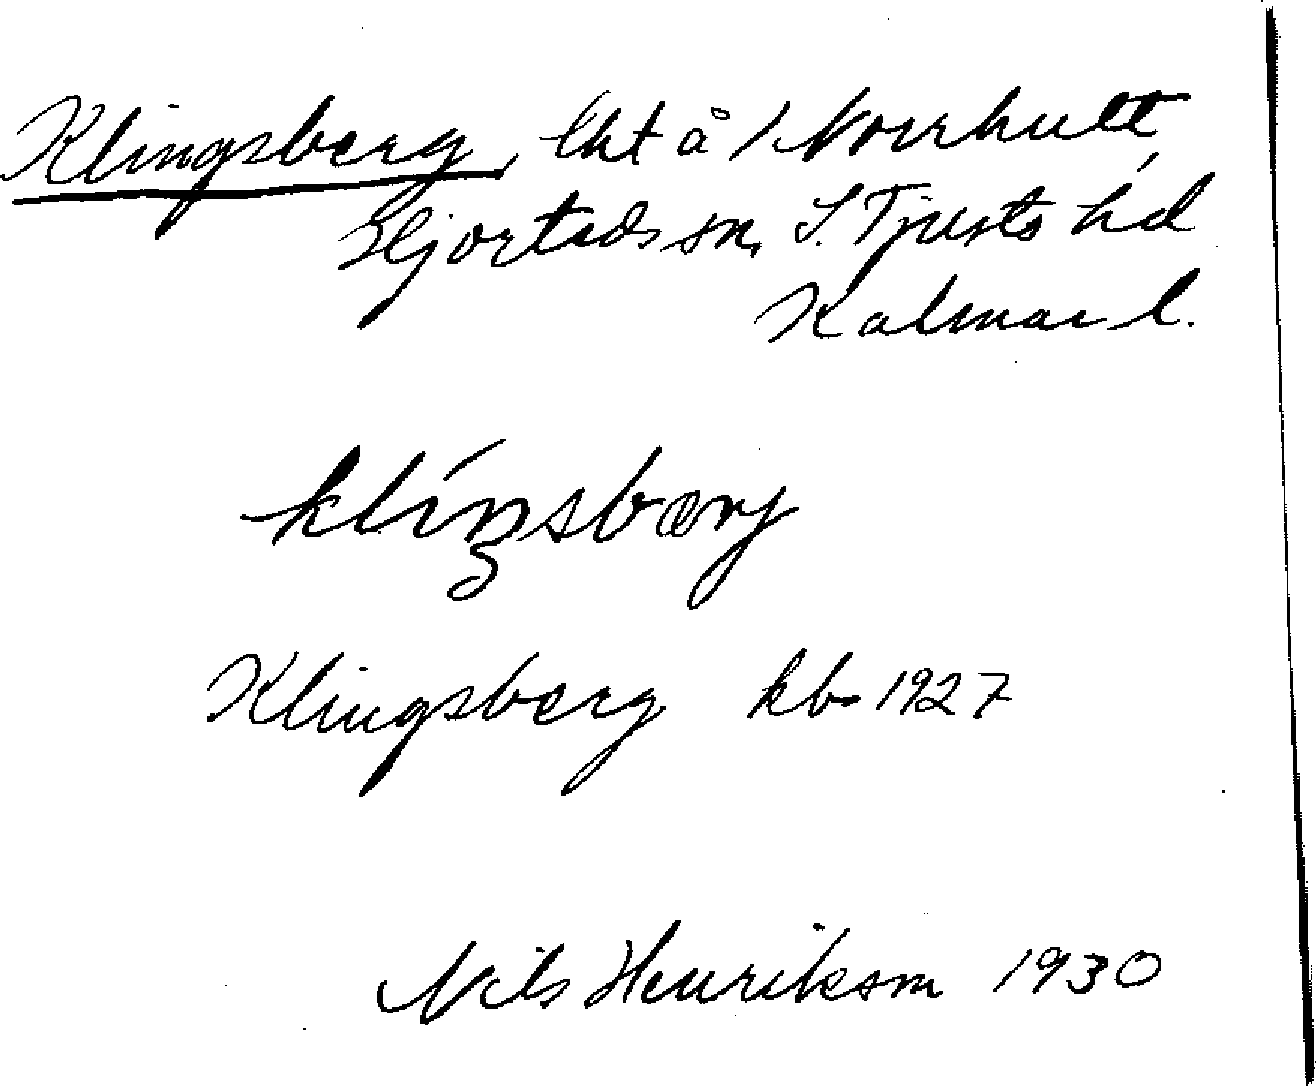 Klingsberg, lht å 1 Norrhult,
Hjorteds sn, S. Tjusts hd
Kalmar l.
klíŋsbærj
Klingsberg kb 1927
Nils Henrikson 1930